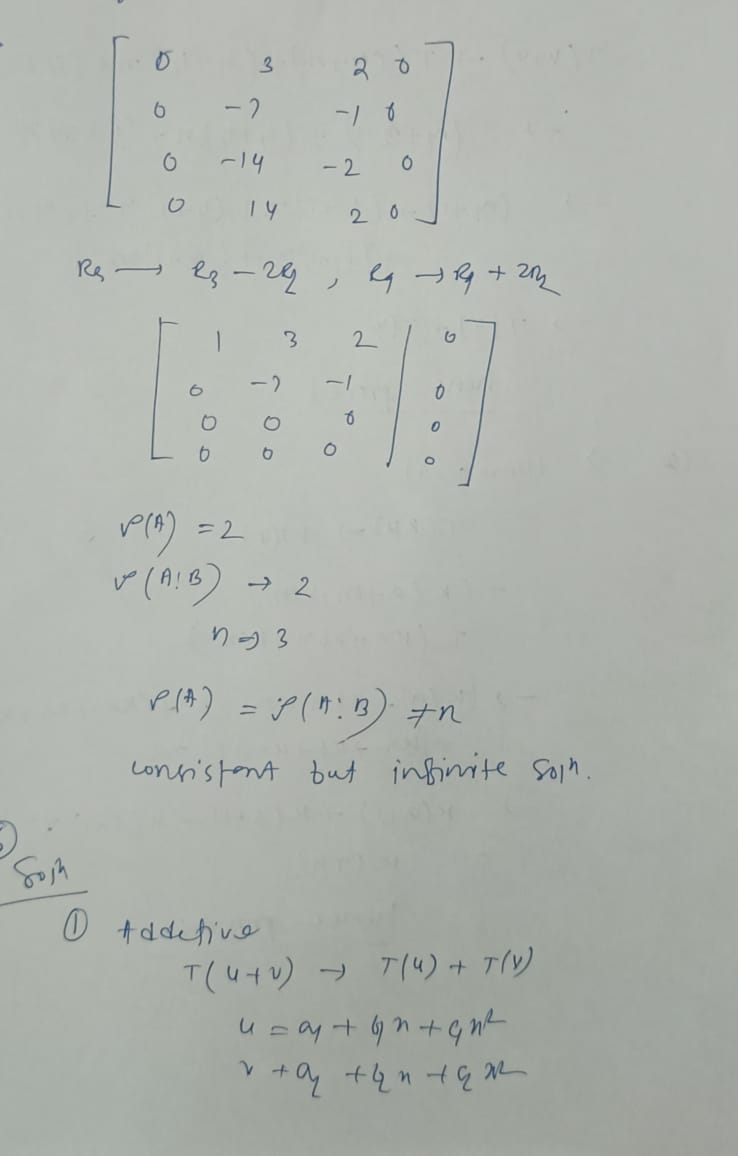 0 3 2 0
0 -7 -1 0
0 -14 -2 0
0 14 2 0
R3 → R3 - 2R2 , R4 → R4 + 2R2
1 3 2 | 0
0 -7 -1 | 0
0 0 0 | 0
0 0 0 | 0
ρ(A) = 2
ρ(A:B) → 2
n ⇒ 3
ρ(A) = ρ(A:B) ≠ n
consistent but infinite soln.
Soln
① Addetive
T(u+v) → T(u) + T(v)
u = a1 + b1x + c1x²
v + a2 + b2x + c2x²